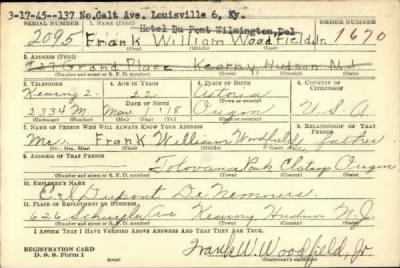 3-17-45--137 No.Galt Ave. Louisville 6, Ky.
SERIAL NUMBER 1. NAME (Print) ORDER NUMBER
Hotel Du Pont Wilmington, Del
2095 Frank William Woodfield, Jr. 1670
2. ADDRESS (Print)
Grand Place Kearny, Hudson N.J.
3. TELEPHONE 4. AGE IN YEARS 5. PLACE OF BIRTH 6. COUNTRY OF CITIZENSHIP
Kearny 2- 22 Astoria
2334 M DATE OF BIRTH Oregon U.S.A.
Mar 1 '18
7. NAME OF PERSON WHO WILL ALWAYS KNOW YOUR ADDRESS 8. RELATIONSHIP OF THAT PERSON
Mr. Frank William Woodfield father
(Mr., Mrs., Miss) (First) (Middle) (Last)
9. ADDRESS OF THAT PERSON
Tolovana Park Clatsop Oregon
(Number and street or R. F. D. number) (Town) (County) (State)
10. EMPLOYER'S NAME
E. I. Dupont De Nemours
11. PLACE OF EMPLOYMENT OR BUSINESS
626 Schuyler Ave Kearny Hudson N.J.
(Number and street or R. F. D. number) (Town) (County) (State)
I AFFIRM THAT I HAVE VERIFIED ABOVE ANSWERS AND THAT THEY ARE TRUE.
REGISTRATION CARD
D. S. S. Form 1 Frank W. Woodfield, Jr.